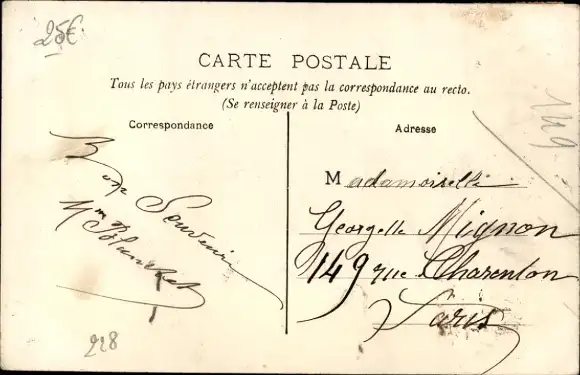 25€
CARTE POSTALE
Tous les pays étrangers n'acceptent pas la correspondance au recto.
(Se renseigner à la Poste)
Correspondance
Adresse
149
Bon Souvenir
Mme Blanchet
228
Madamoiselle
Georgette Mignon
149 rue Charenton
Paris